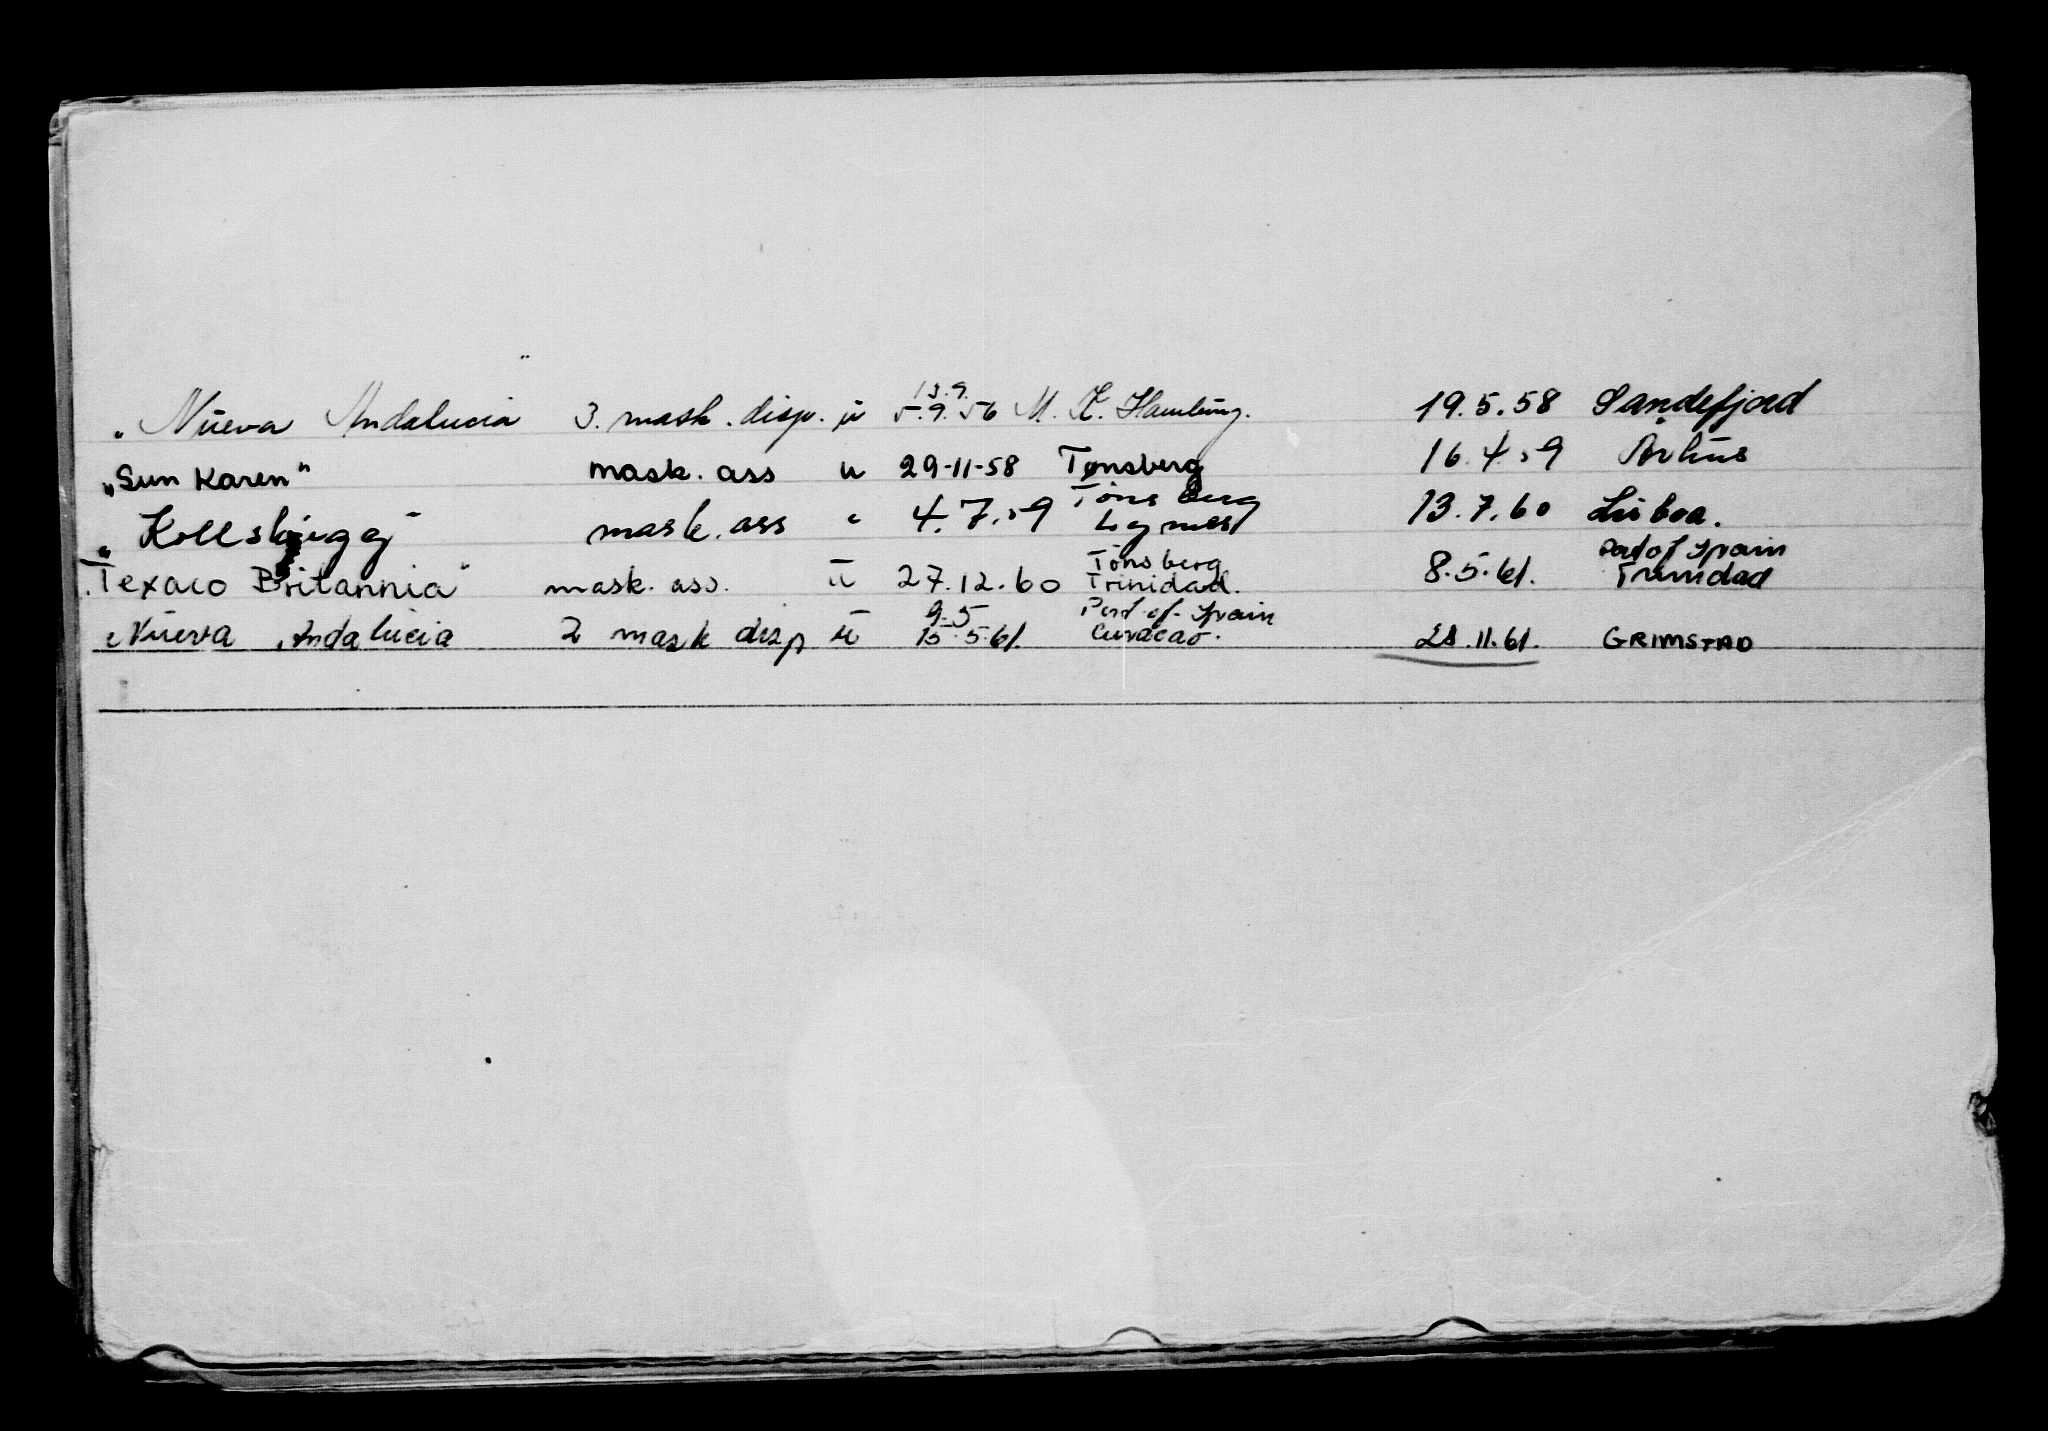 13.9.
"Nueva Andalucia" 3. mask. disp. u 5.9.56 M. K. Hamburg. 19.5.58 Sandefjord
"Sun Karen" mask. ass u 29-11-58 Tønsberg 16.4.59 Århus
Tönsberg
"Kollsbjugg" mask. ass " 4.7.59 13.7.60 Lisboa.
Tönsberg Port of Spain
"Texaco Britannia" mask. ass. u 27.12.60 Trinidad. 8.5.61. Trinidad
9.5 Port of Spain
"Nueva Andalucia 2 mask disp u 15.5.61. Curacao. 28.11.61. GRIMSTAD